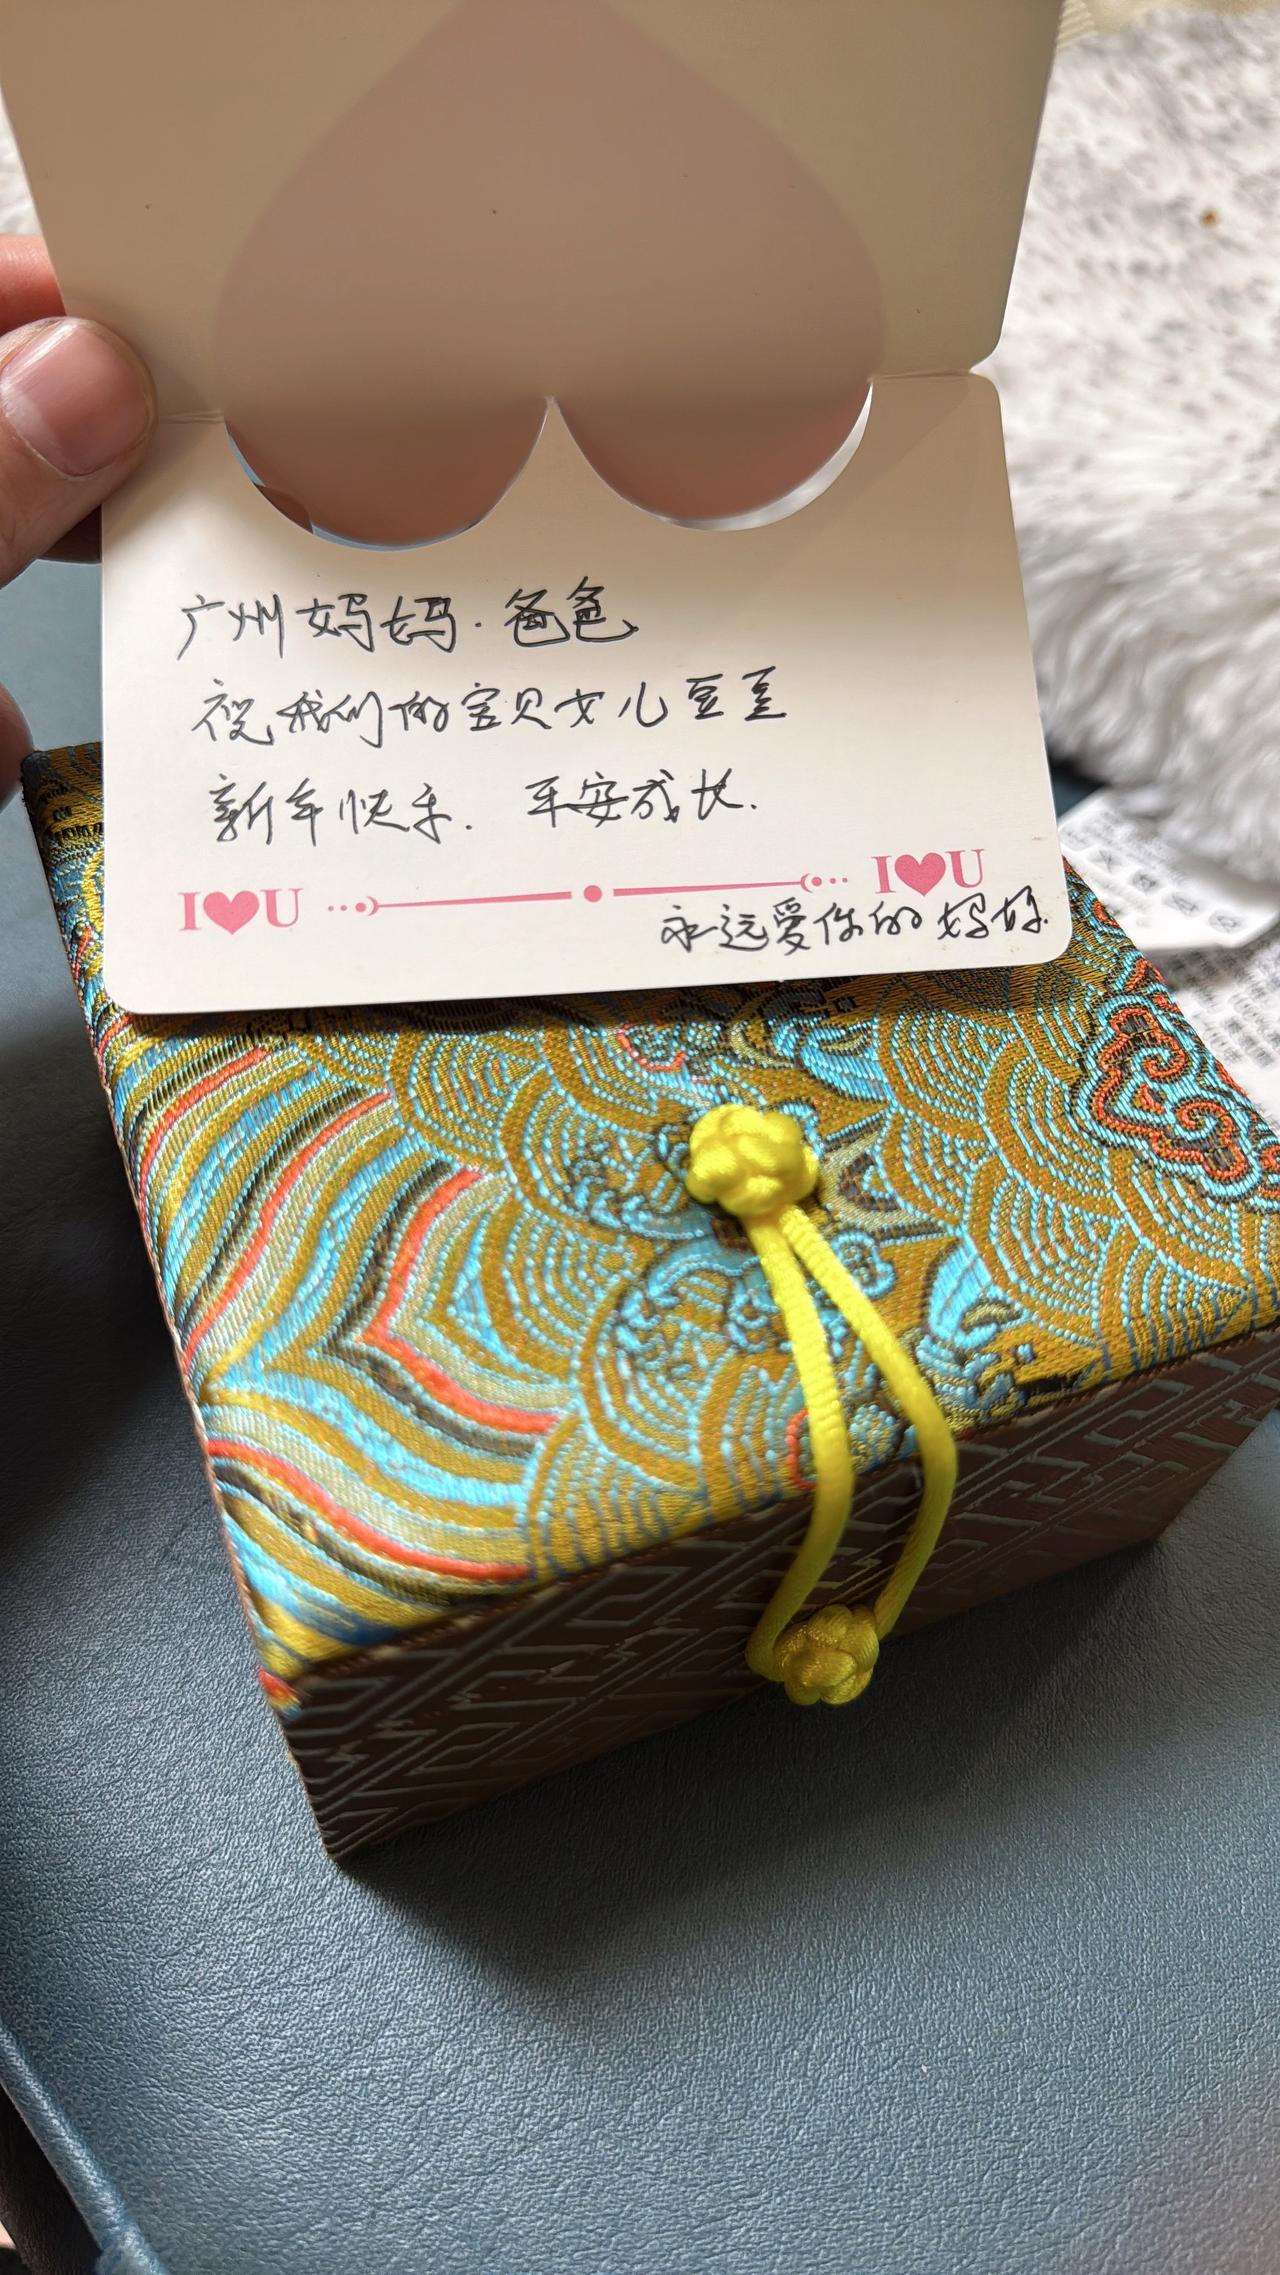 广州妈妈·爸爸
祝我们的宝贝女儿豆豆
新年快乐. 平安成长.
I♥U I♥U
永远爱你的妈妈.